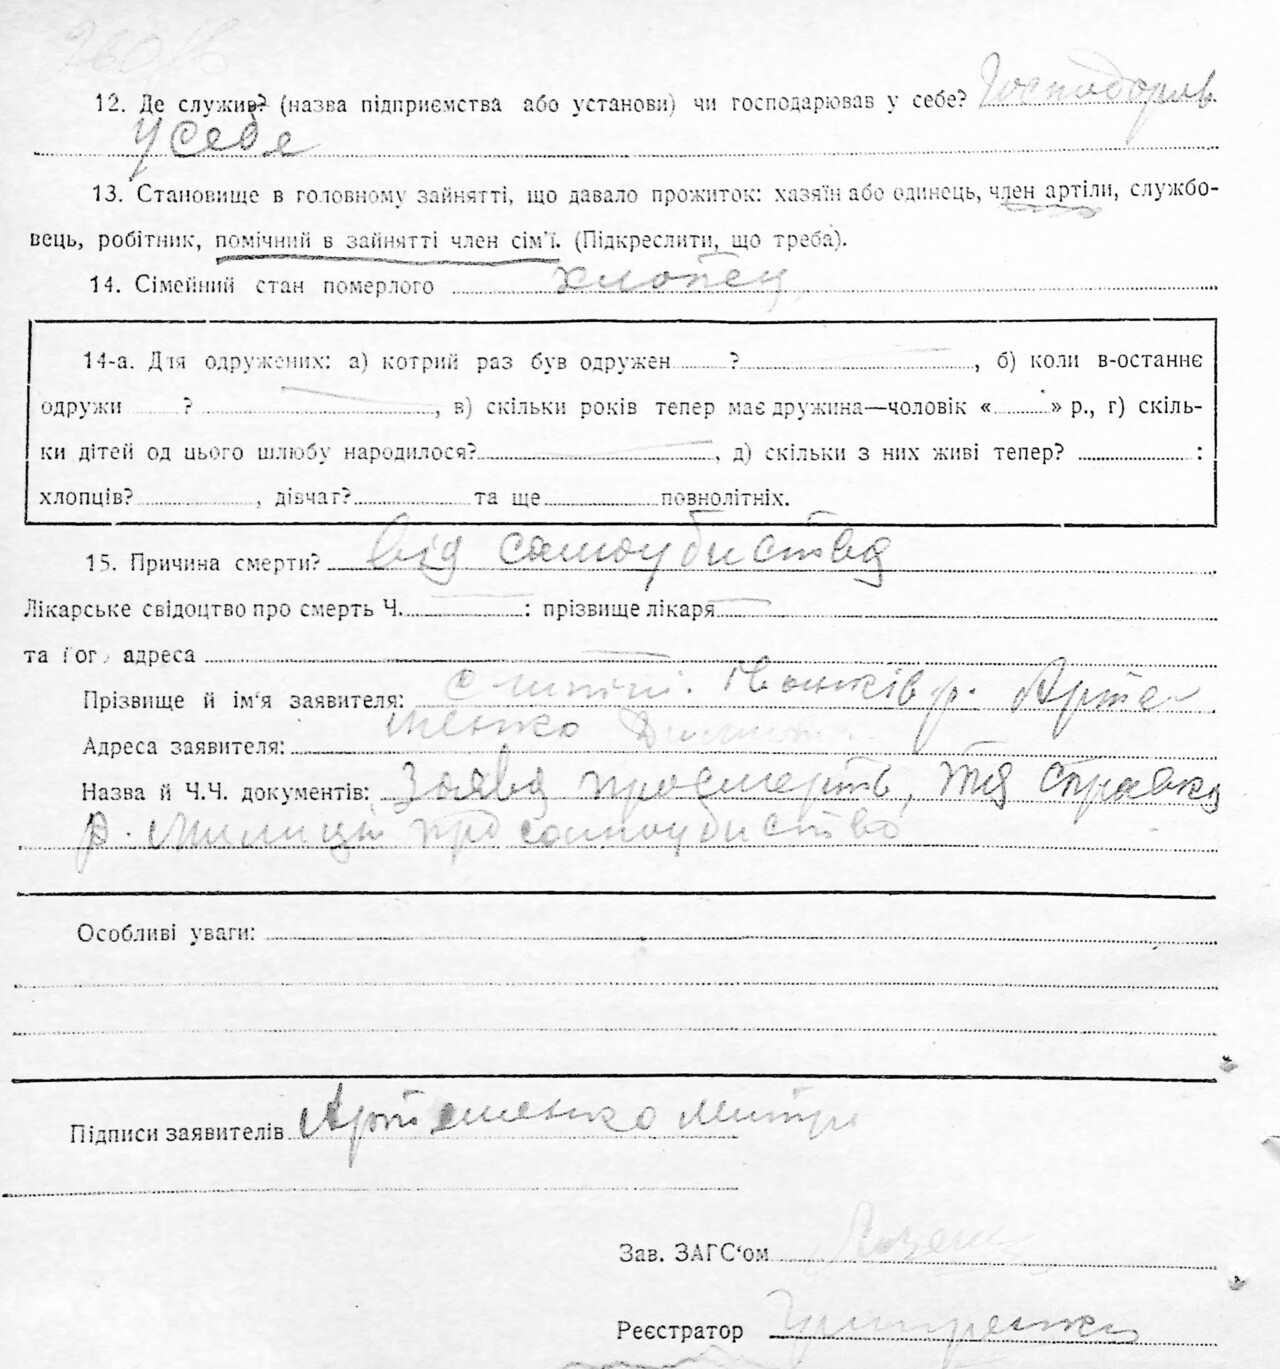 12. Де служив? (назва підприємства або установи) чи господарював у себе? Господарив
у себе
13. Становище в головному зайнятті, що давало прожиток: хазяїн або одинець, член артіли, службо-
вець, робітник, помічний в зайнятті член сім'ї. (Підкреслити, що треба).
14. Сімейний стан померлого хлопец
14-а. Для одружених: а) котрий раз був одружен ?, б) коли в-останнє
одружи ?, в) скільки років тепер має дружина—чоловік « » р., г) скіль-
ки дітей од цього шлюбу народилося?, д) скільки з них живі тепер? :
хлопців? , дівчат? та ще повнолітніх.
15. Причина смерти? від самоубиства
Лікарське свідоцтво про смерть Ч. : прізвище лікаря
та його адреса
Прізвище й ім'я заявителя: Іванків р. Арте
Адреса заявителя: менко
Назва й Ч.Ч. документів: Заява про смерть, та справка
р. милиції про самоубиство
Особливі уваги:
Підписи заявителів Артеменко Митр
Зав. ЗАГС'ом
Реєстратор